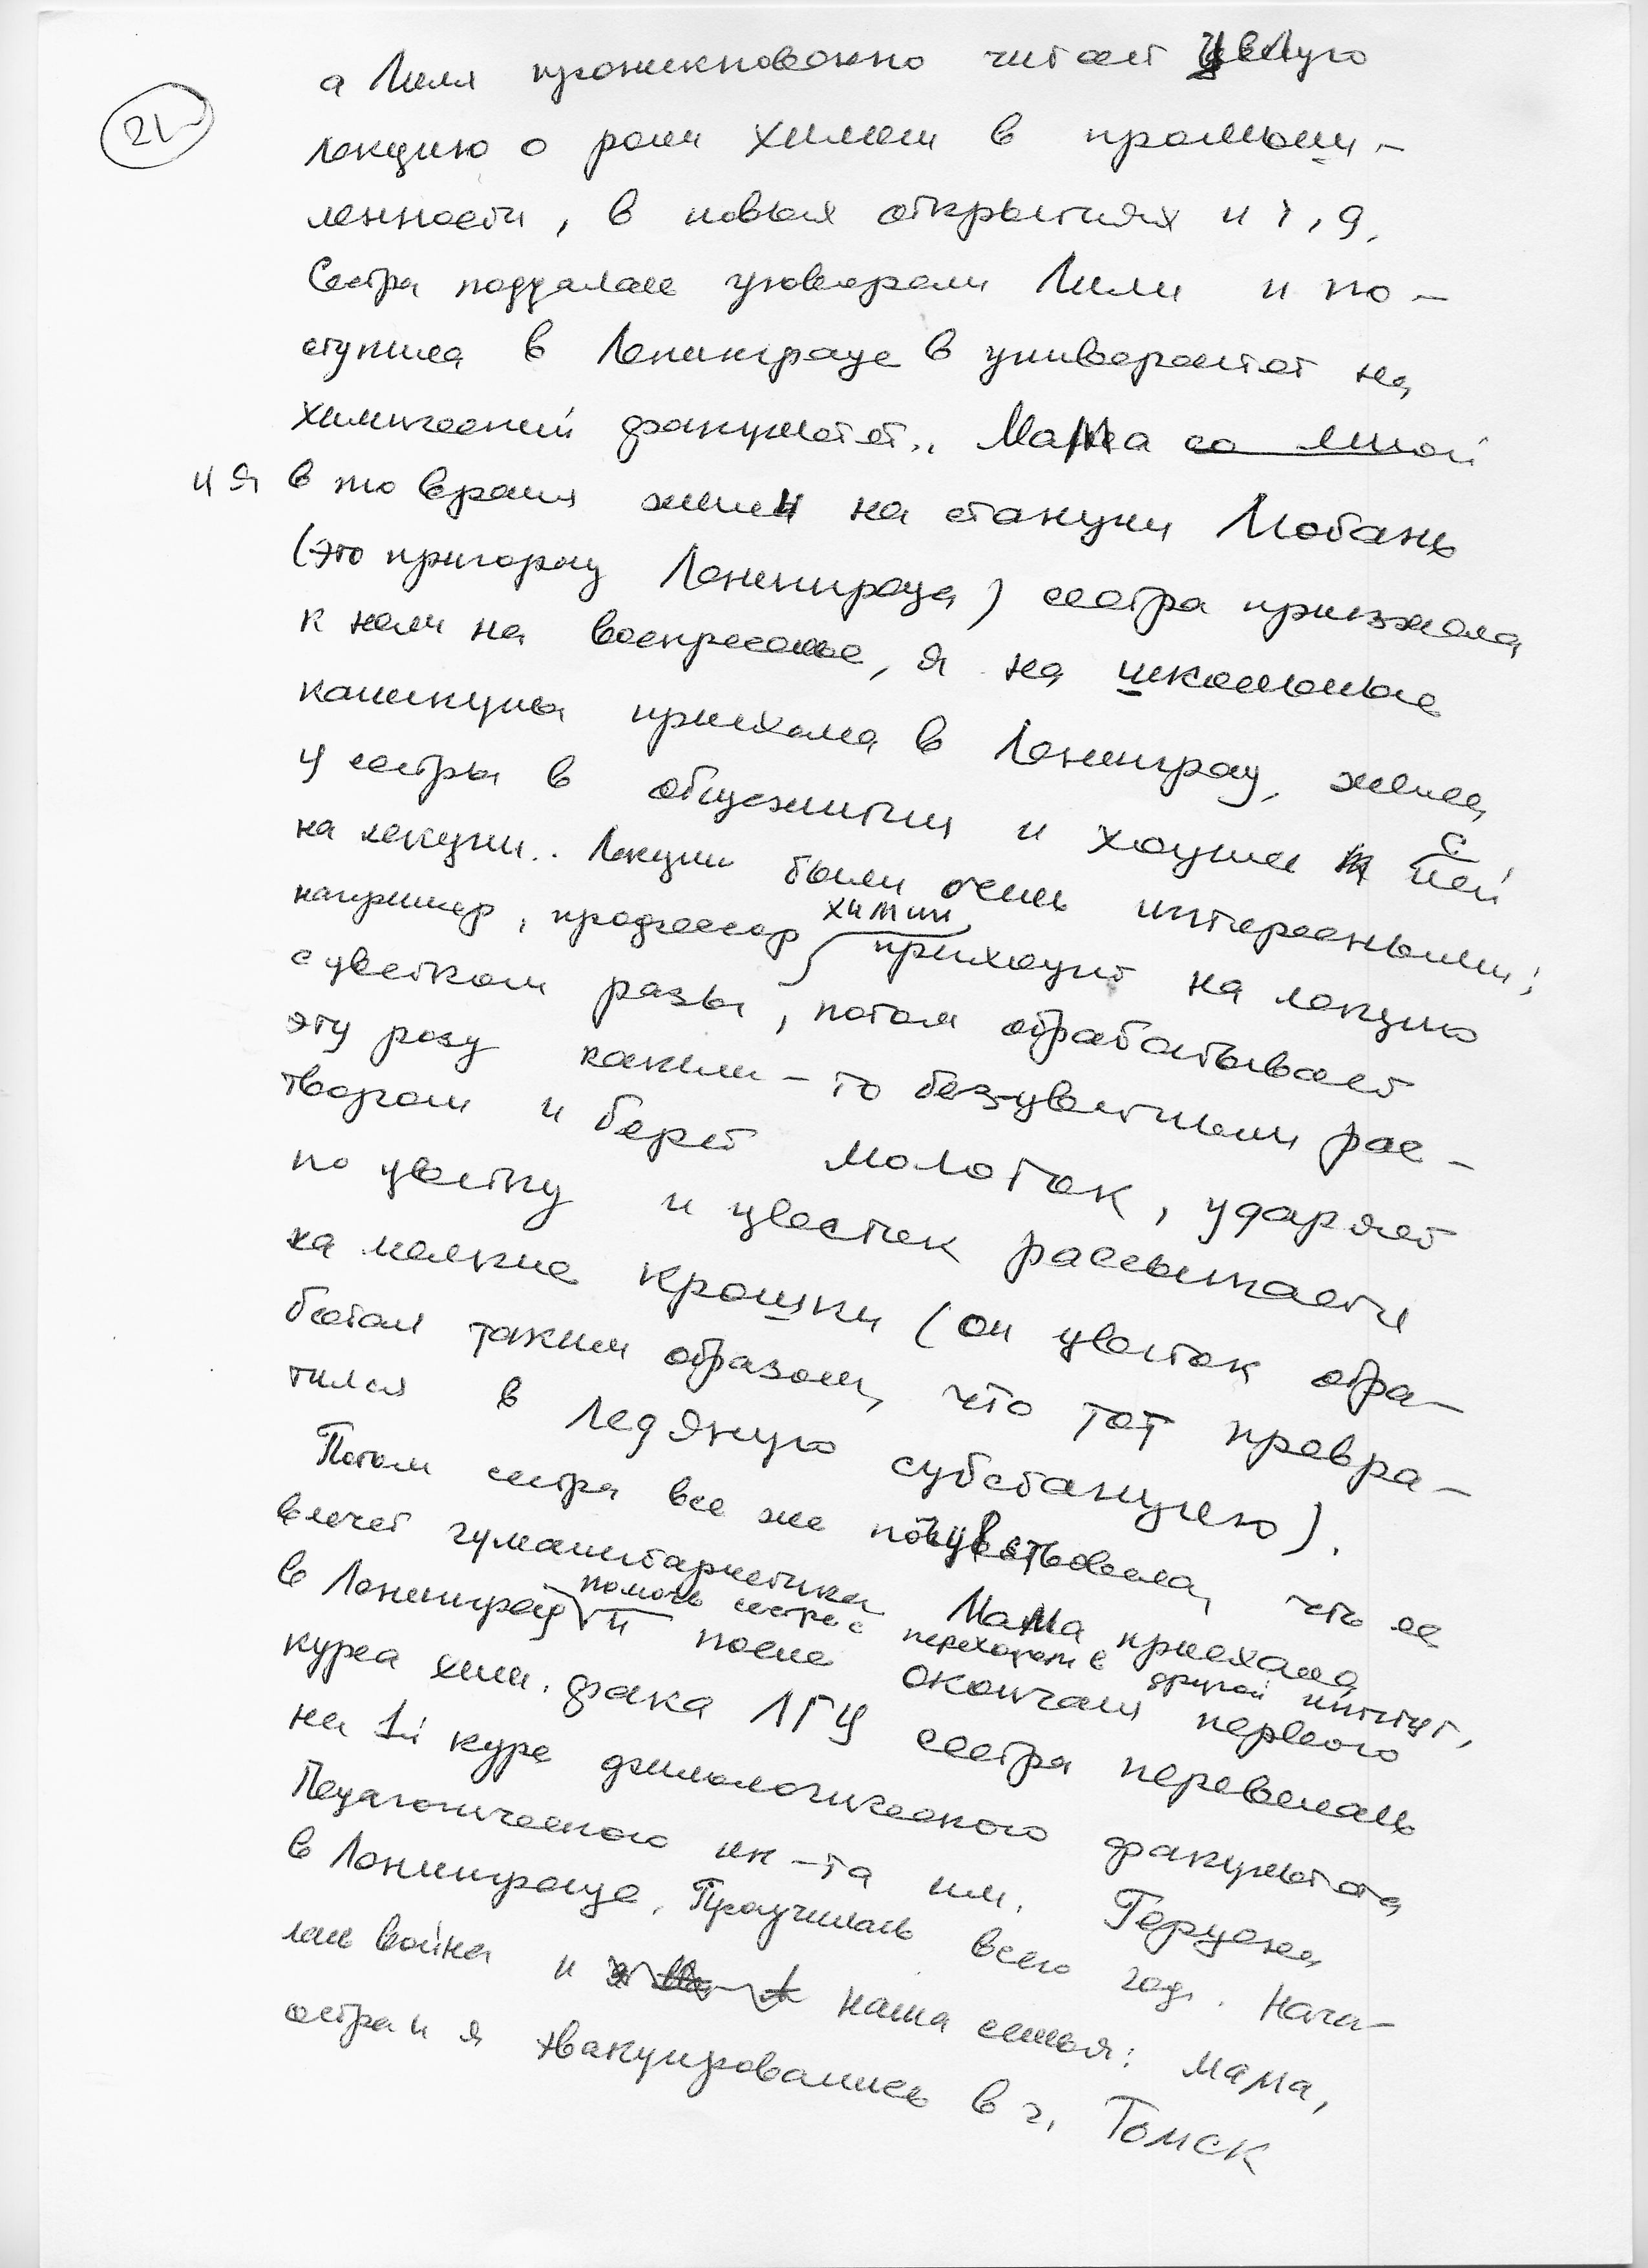 21
а Лиля проникновенно читает целую
лекцию о роли химии в промыш-
ленности, в новых открытиях и т, д.
Сестра поддалась уговорам Лили и по-
ступила в Ленинграде в университет на
химический факультет.. Мама со мной
и я в то время жили на станции Мстань
(это пригород Ленинграда) сестра приезжала
к нам на воскресенье, я на школьные
каникулы приехала в Ленинград, жила
у сестры в общежитии и ходила с ней
на лекции.. Лекции были очень интересными;
например, профессор химии приходит на лекцию
с цветком розы, потом обрабатывает
эту розу каким-то безцветным рас-
твором и берет молоток, ударяет
по цветку и цветок рассыпается
на мелкие крошки (он цветок обра-
ботал таким образом, что тот превра-
тился в ледяную субстанцию).
Потом сестра все же почувствовала, что ее
влечет гуманитаристика Мама приехала
в Ленинград помочь сестре с переходом в другой институт,
и после окончания первого
курса хим. фака ЛГУ сестра перевелась
на 1й курс филологического факультета
Педагогического ин-та им. Герцена
в Ленинграде. Проучилась всего год. Нача-
лась война и наша семья: мама,
сестра и я эвакуировались в г. Томск